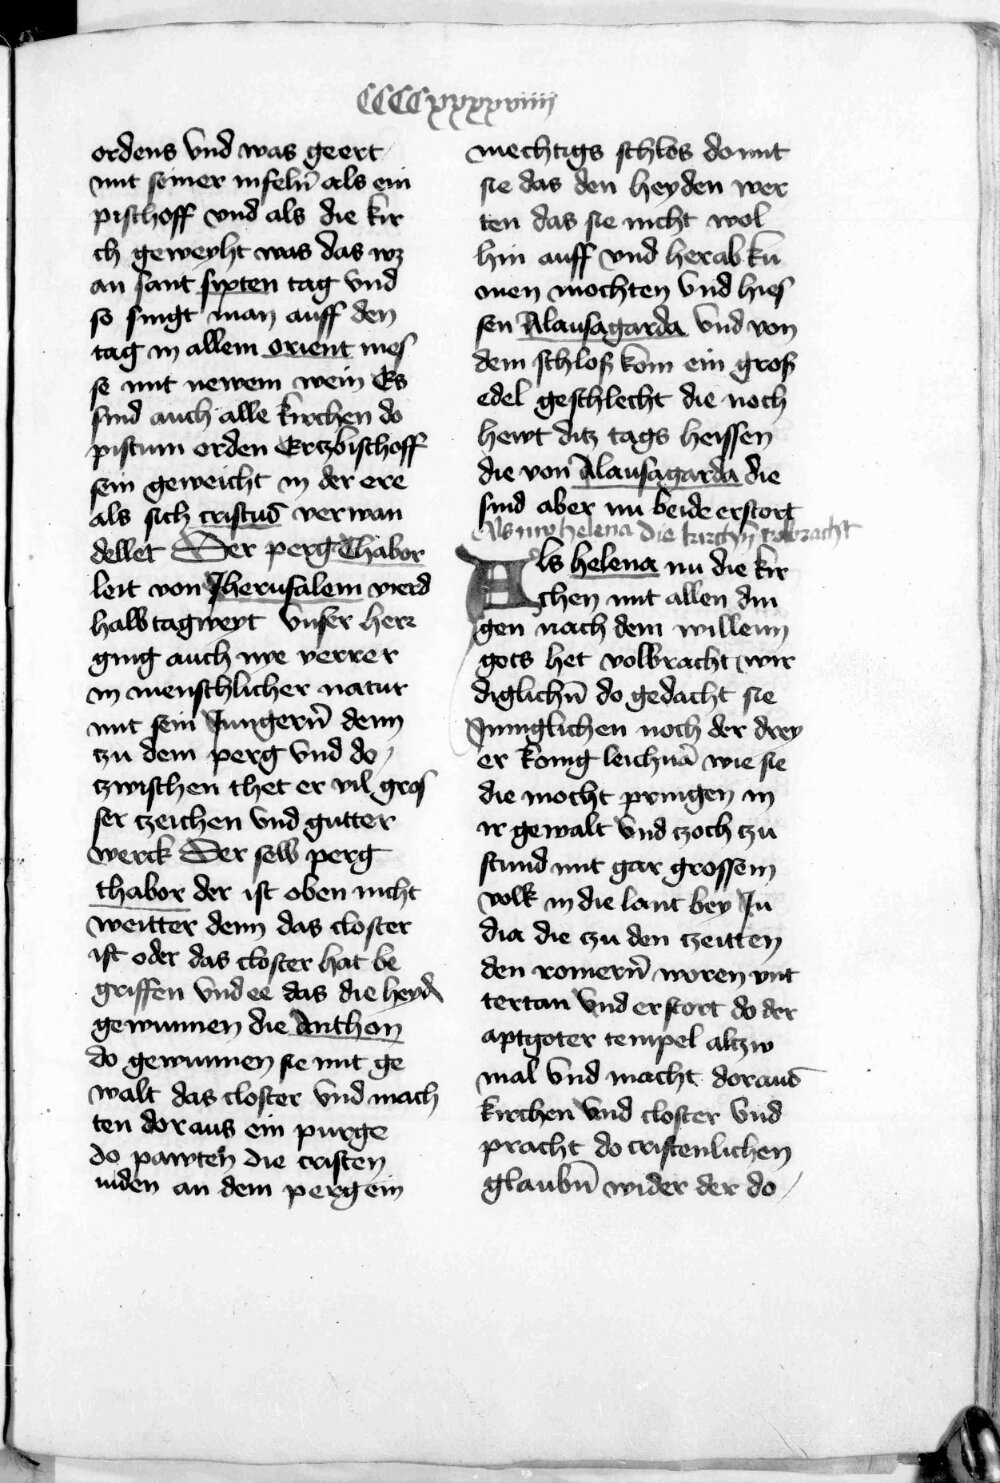 CCCCxxxxviiij
ordens vnd was geert
mit seiner infeln̄ als ein
pischoff vnd als die kir
ch geweyht was das wz
an sant sixten tag vnd
so singt man auff den
tag in allem orient mes
se mit newem wein Es
sind auch alle kirchen do
pistum orden Ertzbischoff
sein geweicht in der ere
als sich cristus verwan
dellet Der perg Thabor
leit von Jherusalem vierd
halb tagweyt vnser herr
ging auch nye verrer
in menschlicher natur
mit sein Jungern̄ denn
zu dem perg vnd do
zwischen thet er vil gros
ser zeichen vnd gutter
werck Der selb perg
thabor der ist oben nicht
weitter denn das closter
ist oder das closter hat be
griffen vnd ee das die heyd
gewunnen die Anthon
do gewunnen sie mit ge
walt das closter vnd mach
ten dor aus ein purge
do pawten die cristen
niden an dem perg ein
mechtigs schlos do mit
sie das den heyden wer
ten das sie nicht wol
hin auff vnd herab kū
men mochten vnd hies
sen Alausagarda vnd von
dem schloß kom ein groß
edel geschlecht die noch
hewt ditz tags heissen
die von Alausagarda die
sind aber nu beide erstort
Als nw helena die kirchn̄ volbracht
Als helena nu die kir
chen mit allen din
gen nach dem willenn
gots het volbracht wir
diglichn̄ do gedacht sie
Jnniglichen noch der drey
er konig leichnā wie sie
die mocht pringen in
ir gewalt vnd zoch zu
stund mit gar grossem
volk in die lant bey Jn
dia die zu den zeitten
den romern̄ woren vnt
tertan vnd erstort do der
aptgoter tempel altzw
mal vnd macht doraus
kirchen vnd closter vnd
pracht do cristenlichen
glaubn̄ wider der do